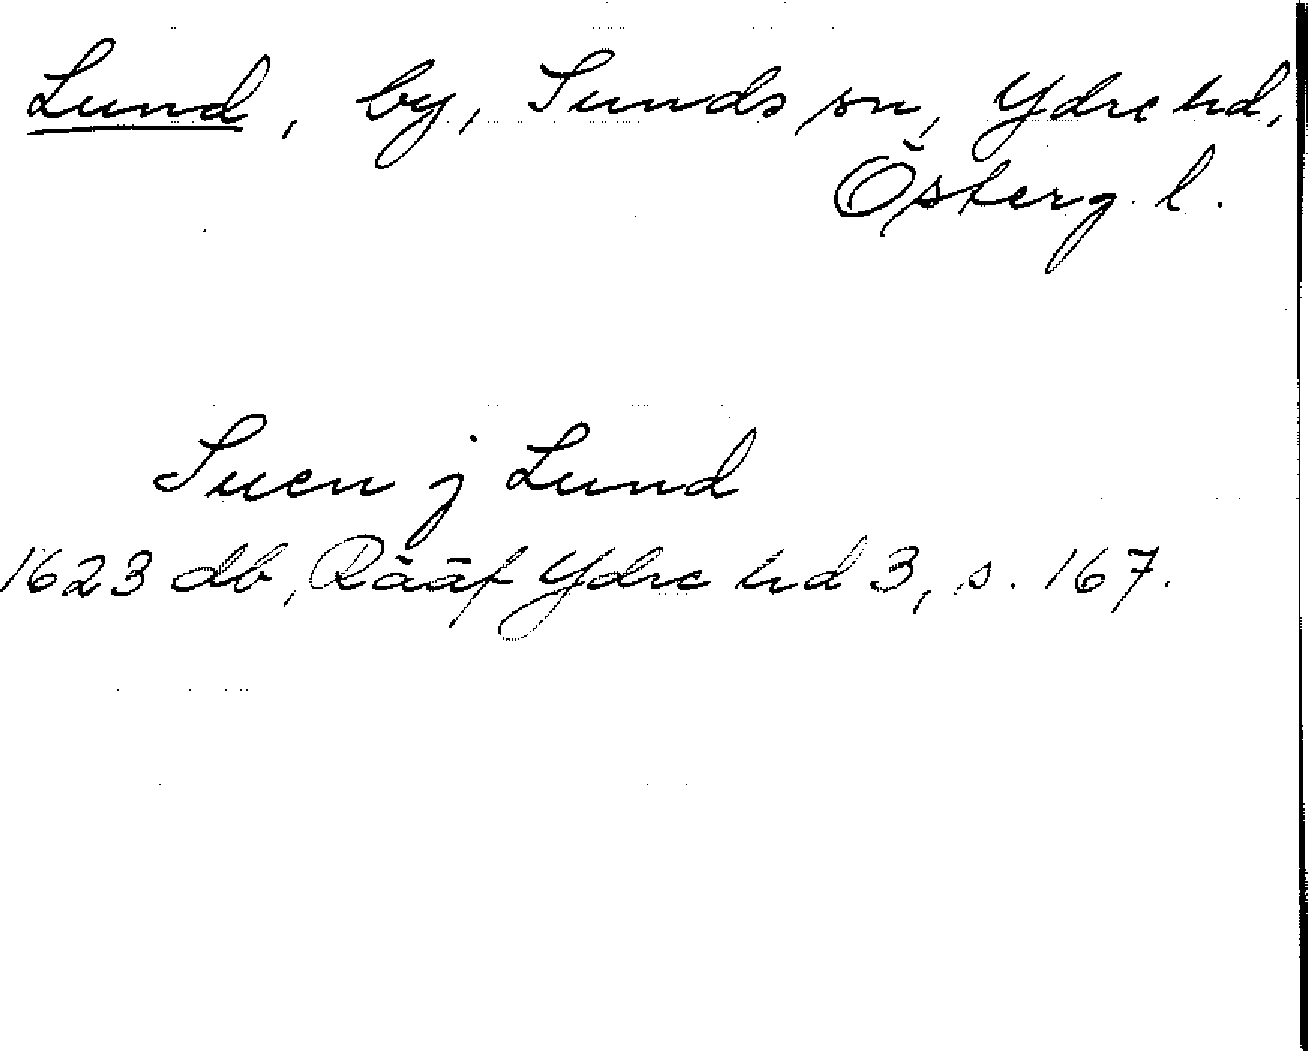 Lund, by, Sunds sn, Ydre hd,
Österg. l.
Suen j Lund
1623 db, Rääf Ydre hd 3, s. 167.